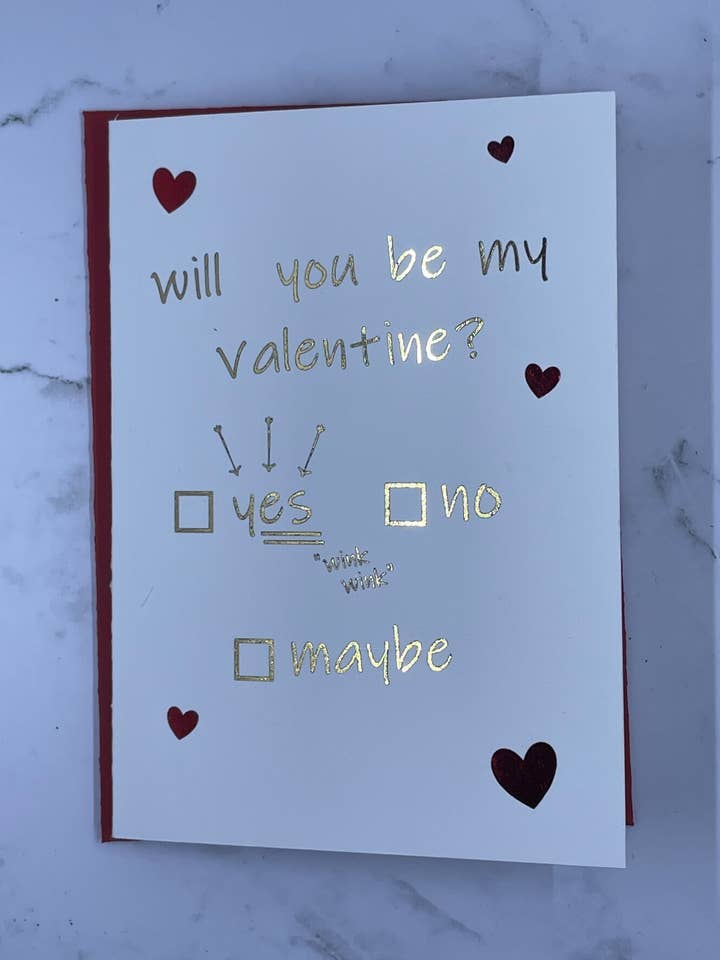 will you be my
valentine?
yes no
"wink
wink"
maybe